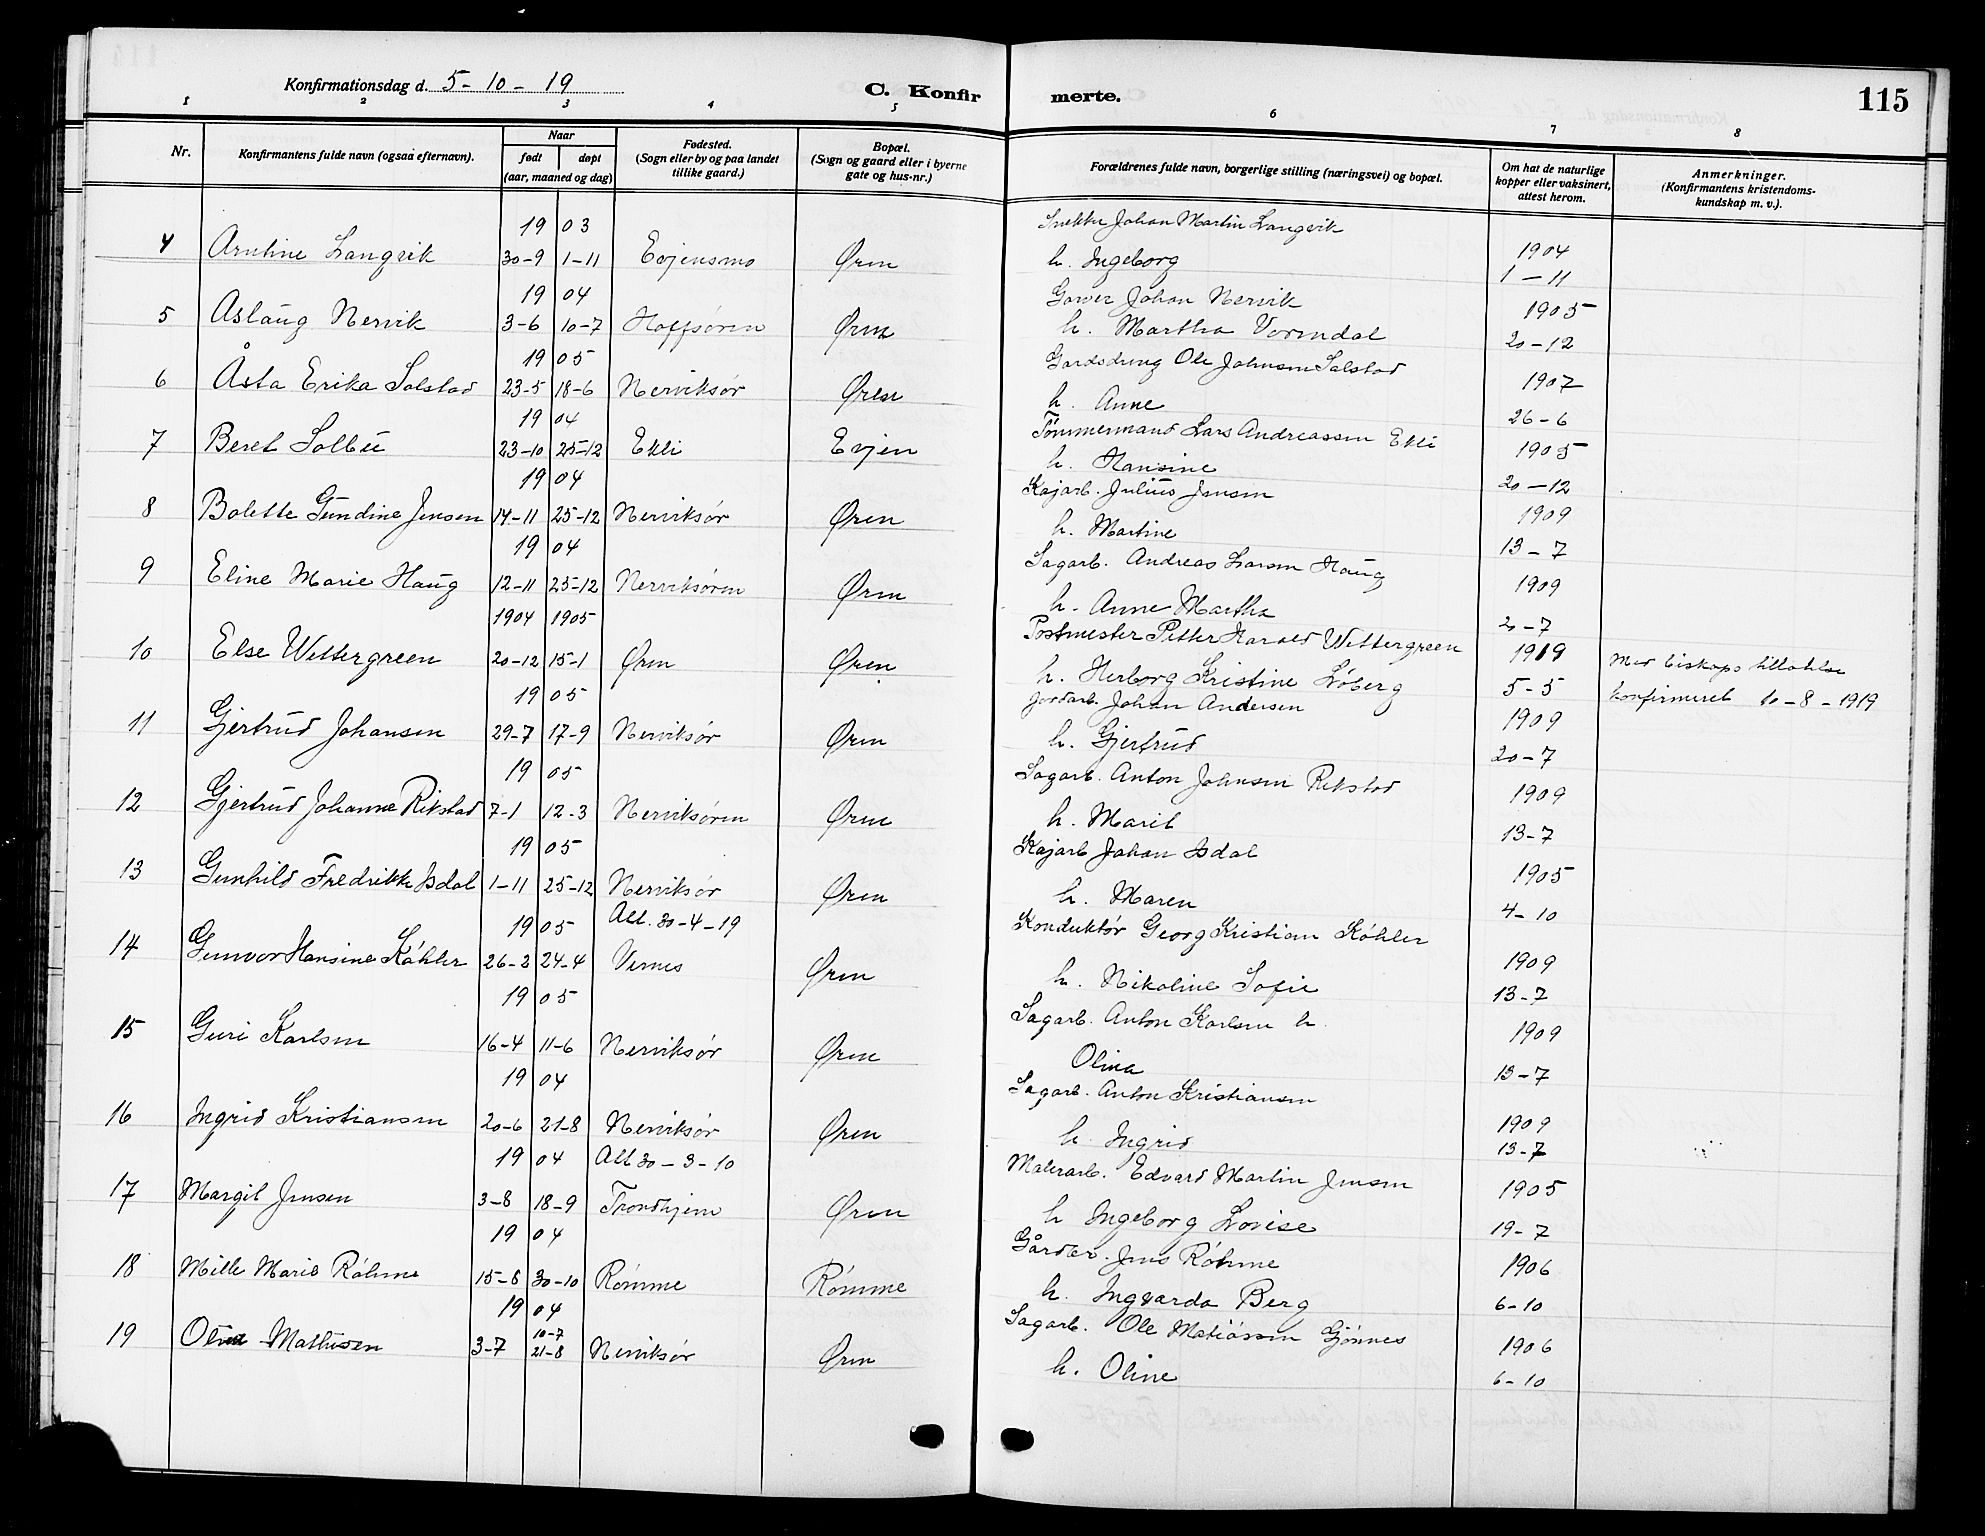 Konfirmationsdag d. 5-10-19
C. Konfirmerte.
115
1 2 3 4 5 6 7 8
Nr.
Konfirmantens fulde navn (ogsaa efternavn).
Naar
født døpt
(aar, maaned og dag)
Fødested.
(Sogn eller by og paa landet
tillike gaard.)
Bopæl.
(Sogn og gaard eller i byerne
gate og hus-nr.)
Forældrenes fulde navn, borgerlige stilling (næringsvei) og bopæl.
Om hat de naturlige
kopper eller vaksinert,
attest herom.
Anmerkninger.
(Konfirmantens kristendoms-
kundskap m. v.).
19 03 Snekker Johan Martin Langvik
4 Arntine Langvik 30-9 1-11 Evjensmo Øren h. Ingeborg 1904 1-11
19 04 Garver Johan Nervik
5 Aslaug Nervik 3-6 10-7 Hoffsøren Øren h. Martha Vormdal 1905 20-12
19 05 Gardsdreng Ole Johnsen Solstad
6 Åsta Erika Solstad 23-5 18-6 Nerviksør Øren h. Anne 1907 26-6
19 04 Tømmermand Lars Andreassen Ekli
7 Beret Solbu 23-10 25-12 Ekli Evjen h. Hansine 1905 20-12
19 04 Kajarb. Julius Jensen
8 Bolette Gundine Jensen 14-11 25-12 Nerviksør Øren h. Martine 1909 13-7
19 04 Sagarb. Andreas Larsen Haug
9 Eline Marie Haug 12-11 25-12 Nerviksøren Øren h. Anne Martha 1909 20-7
1904 1905 Postmester Petter Harald Wettergreen
10 Else Wettergreen 20-12 15-1 Øren Øren h. Herborg Kristine Løberg 1919 5-5 Med biskops tilladelse
konfirmeret 10-8-1919
19 05 Jordarb. Johan Andersen
11 Gjertrud Johansen 29-7 17-9 Nerviksør Øren h. Gjertrud 1909 20-7
19 05 Sagarb. Anton Johnsen Rikstad
12 Gjertrud Johanne Rikstad 7-1 12-3 Nerviksøren Øren h. Marit 1909 13-7
19 05 Kajarb Johan Isdal
13 Gunhild Fredrikke Isdal 1-11 25-12 Nerviksør Øren h. Maren 1905 4-10
19 05 Att. 30-4-19 Konduktør Georg Kristian Köhler
14 Gunvor Hansine Köhler 26-2 24-4 Vernes Øren h. Nikoline Sofie 1909 13-7
19 05 Sagarb. Anton Karlsen h.
15 Guri Karlsen 16-4 11-6 Nerviksør Øren Olina 1909 13-7
19 04 Sagarb. Anton Kristiansen
16 Ingrid Kristiansen 20-6 21-8 Nerviksør Øren h. Ingrid 1909 13-7
19 04 Att 30-3-10 Malerarb. Edvard Martin Jensen
17 Margit Jensen 3-8 18-9 Trondhjem Øren h Ingeborg Lovise 1905 19-7
19 04 Gårdbr. Jens Röhme
18 Mille Marie Röhme 15-8 30-10 Rømme Rømme h. Ingvarda Berg 1906 6-10
19 04 Sagarb. Ole Matiassen Gjønnes
19 Olina Mathisen 3-7 10-7 21-8 Nerviksør Øren h. Oline 1906 6-10